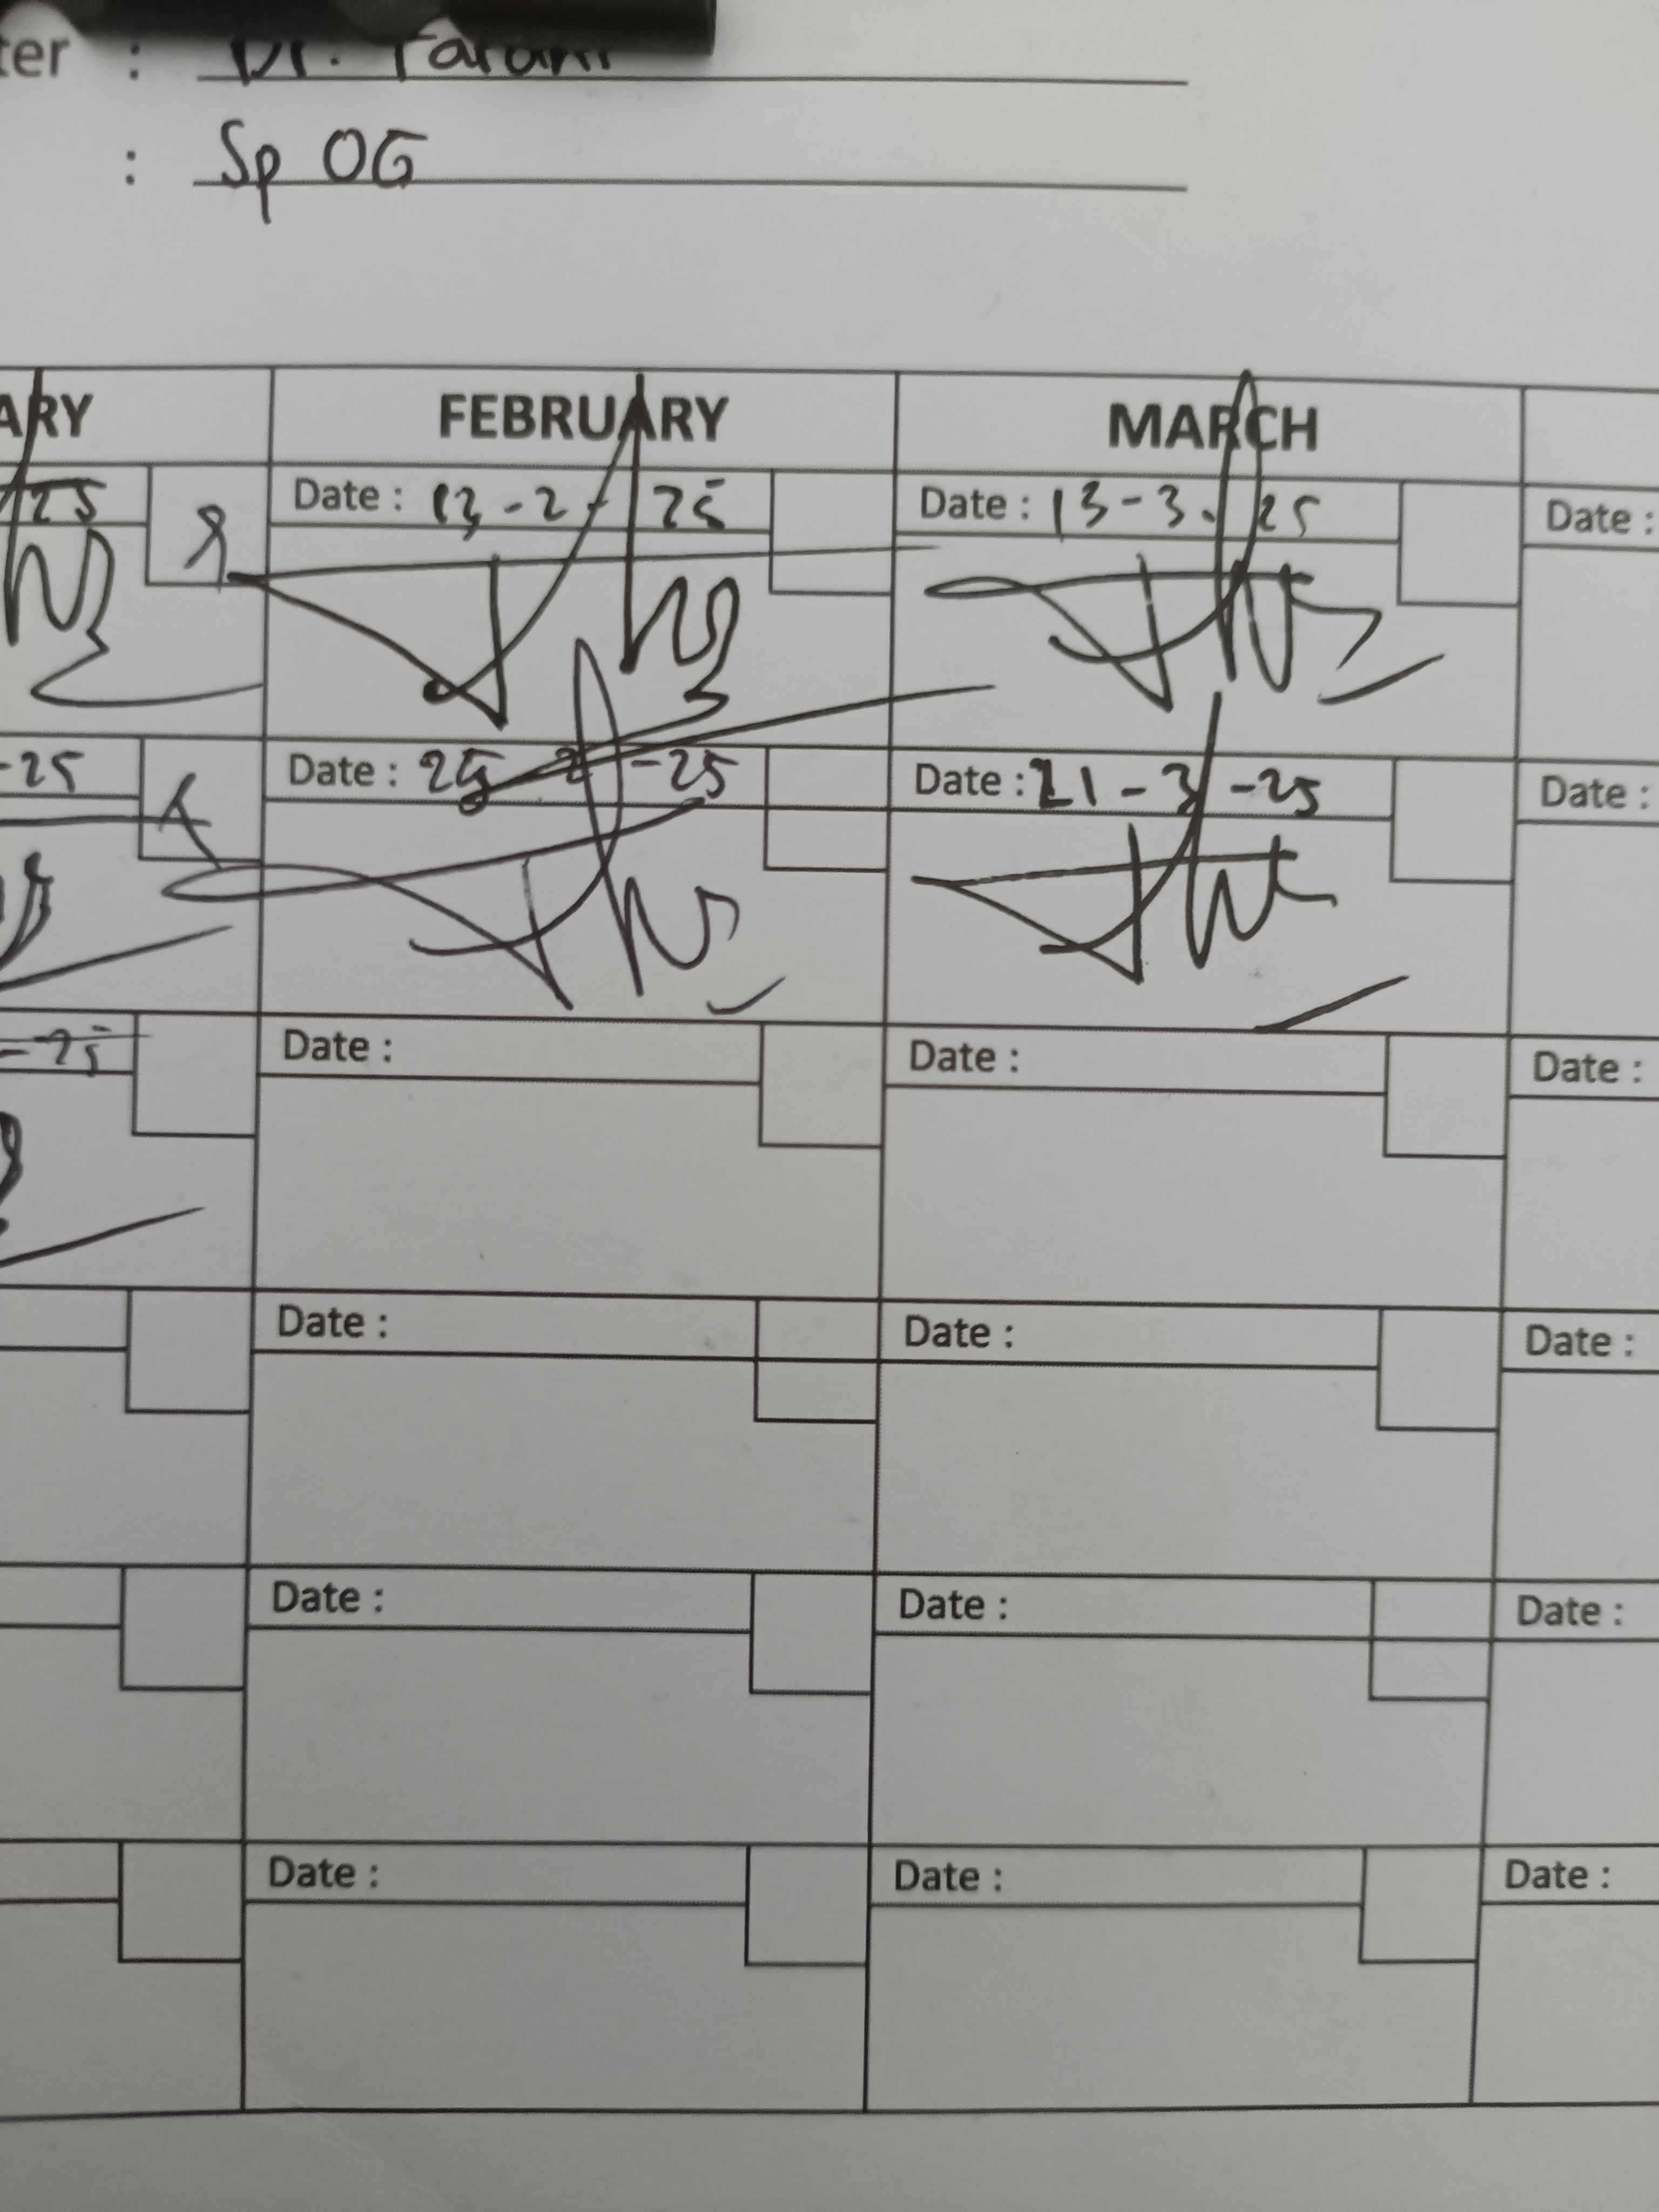 ter :
: Sp OG
ARY FEBRUARY MARCH
25 Date : 13 - 2 - 25 Date : 13 - 3 - 25 Date :
-25 Date : 25 2 -25 Date : 21 - 3 -25 Date :
-25 Date : Date : Date :
Date : Date : Date :
Date : Date : Date :
Date : Date : Date :